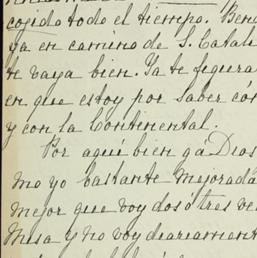 cogido todo el tiempo. Bend
ya en camino de S. Catali
te vaya bien. Ya te figura
en que estoy por saber cóm
y con la Continental.
Por aquí bien gā Dios
mo yo bastante mejorada
mejor que voy dos ó tres ve
Misa y no voy diariament